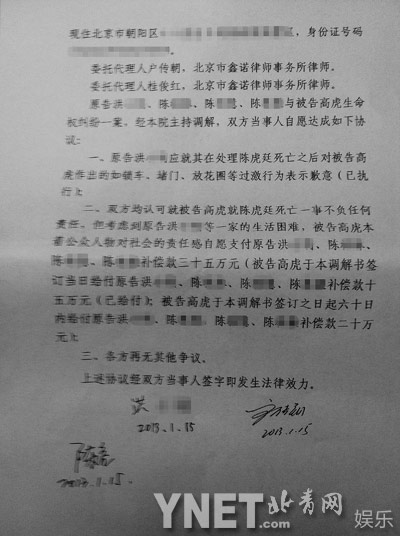 现住北京市朝阳区，身份证号码
。
委托代理人户传朝，北京市鑫诺律师事务所律师。
委托代理人桂俊红，北京市鑫诺律师事务所律师。
原告洪、陈、陈、陈与被告高虎生命
权纠纷一案，经本院主持调解，双方当事人自愿达成如下协
议：
一、原告洪应就其在处理陈虎廷死亡之后对被告高
虎作出的如锁车、堵门、放花圈等过激行为表示歉意（已执
行）；
二、双方均认可就被告高虎就陈虎廷死亡一事不负任何
责任。但考虑到原告洪等一家的生活困难，被告高虎本
着公众人物对社会的责任感自愿支付原告洪、陈、
陈、陈补偿款三十五万元（被告高虎于本调解书签
订当日给付原告洪、陈、陈、陈补偿款十
五万元（已给付）；被告高虎于本调解书签订之日起六十日
内给付原告洪、陈、陈、陈补偿款二十万
元）；
三、各方再无其他争议。
上述协议经双方当事人签字即发生法律效力。
洪
2013.1.15
2013.1.15
2013.1.15.
YNET.com 北青网 娱乐